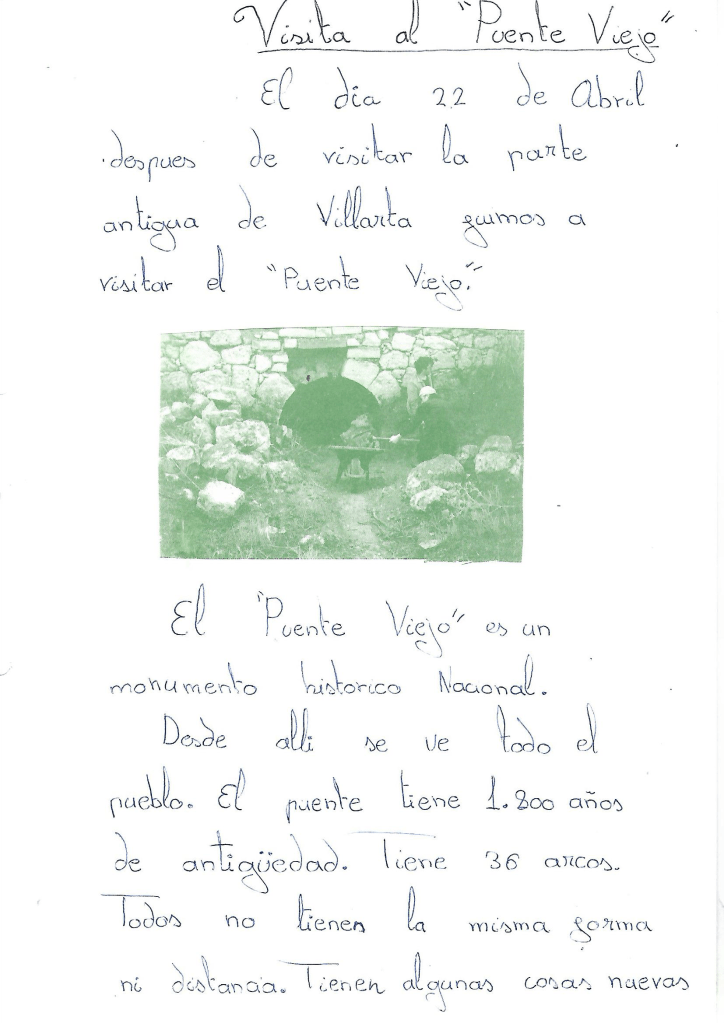 Visita al "Puente Viejo"
El dia 22 de Abril
despues de visitar la parte
antigua de Villarta fuimos a
visitar el "Puente Viejo."
El "Puente Viejo" es un
monumento historico Nacional.
Desde alli se ve todo el
pueblo. El puente tiene 1.800 años
de antigüedad. Tiene 36 arcos.
Todos no tienen la misma forma
ni distancia. Tienen algunas cosas nuevas